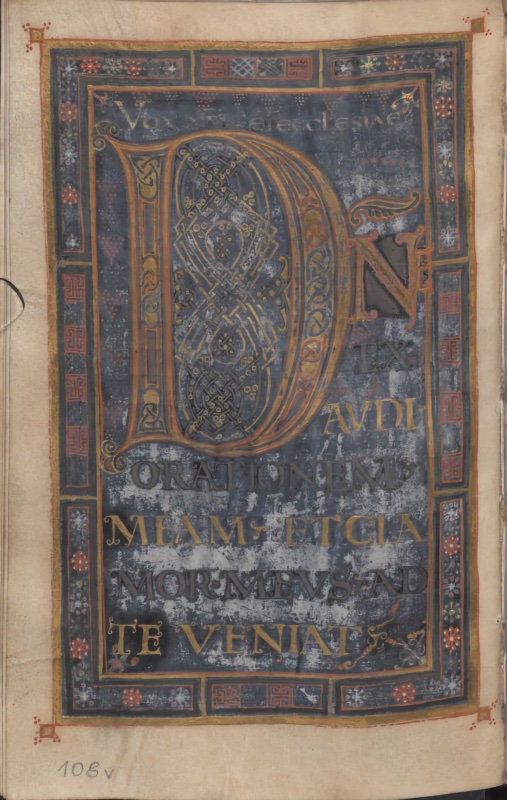 VOX ET ECCLESIAE
DÑ
EX
AVDI
ORATIONEM
MEAM ET CLA
MOR MEVS AD
TE VENIAT
108v